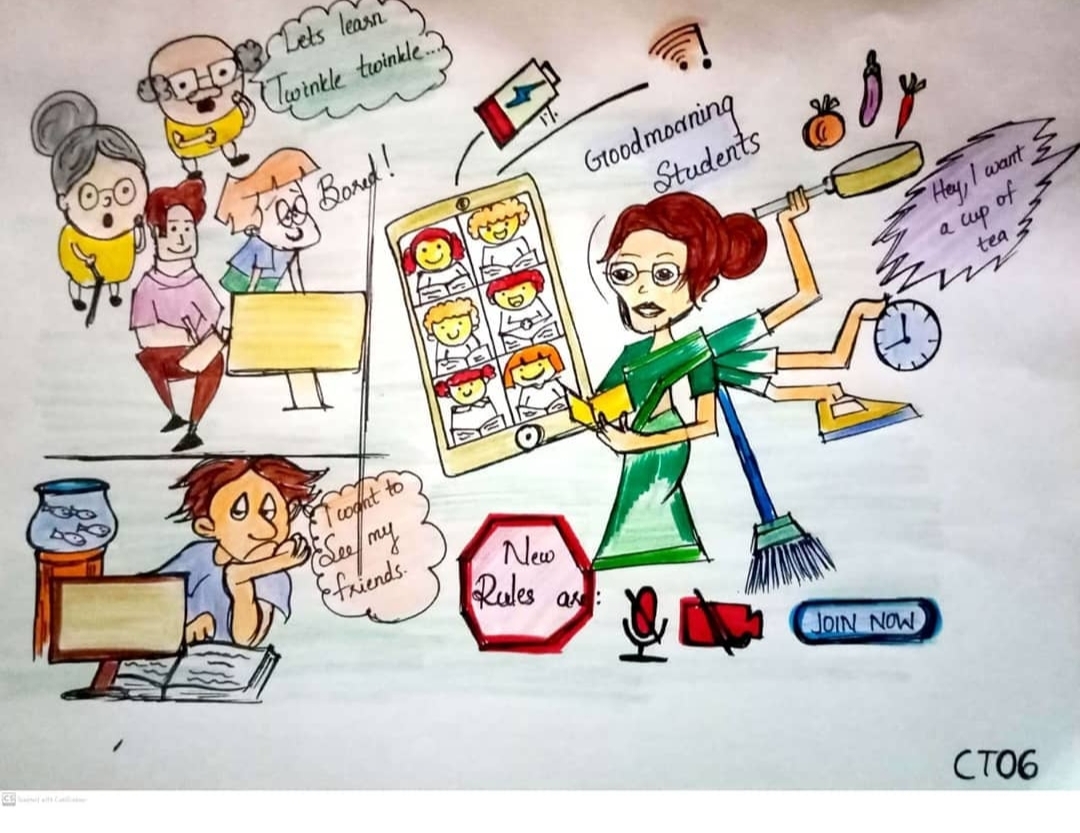 Lets learn
Twinkle twinkle...
Bored!
1%
Goodmorning
Students
Hey, I want
a cup of
tea
I want to
See my
friends.
New
Rules are:
JOIN NOW
CT06
CS Scanned with CamScanner